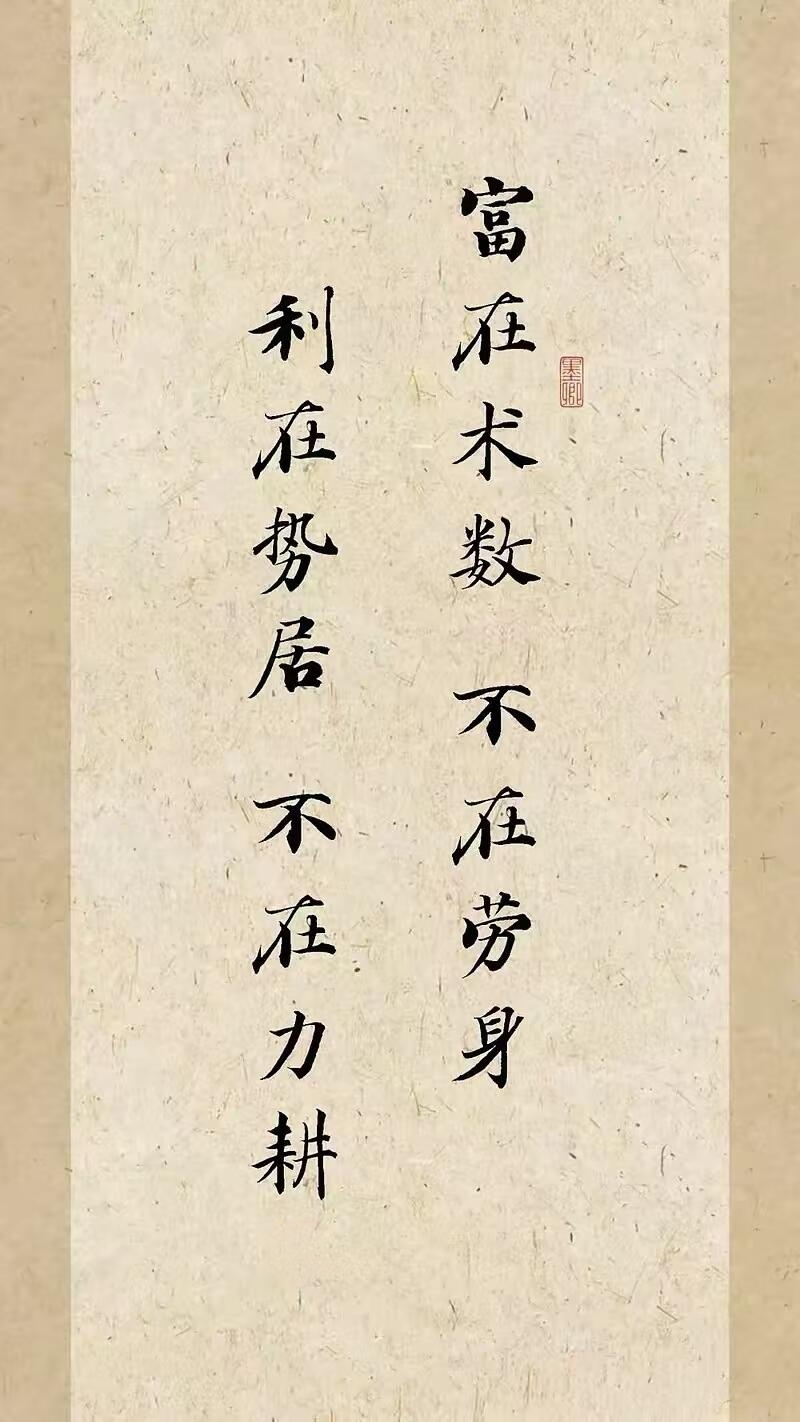 富在术数 不在劳身
利在势居 不在力耕
墨卿